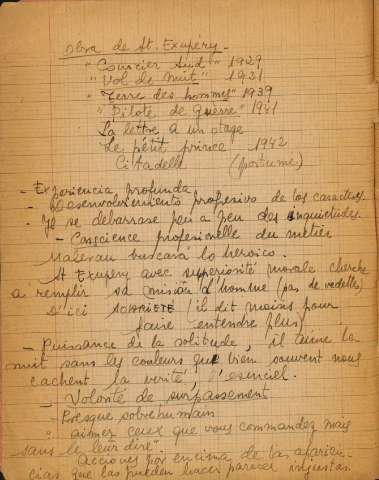 Obra de St. Exupéry.
"Courrier Sud" 1929
"Vol de Nuit" 1931
"Terre des hommes" 1939
"Pilote de Guèrre" 1941
La lettre a un otage
Le petit prince 1942
Citadelle (postume)
- Experiencia profunda
- Desenvolvimiento progresivo de los caracteres.
- Je se débarrase peu a peu des inquietudes.
- Conscience profesionelle du métier
Malraux buscará lo heroico.
St Exupéry avec superiorité morale cherche
a remplir sa mision d'homme (pas de vedette)
D'ici SOBRIÉTÉ (il dit moins pour
faire entendre plus)
- Puissance de la solitude, il aime la
nuit sans les couleurs que bien souvent nous
cachent la verité, l'esenciel.
- Volonté de surpassement
Presque sobrehumain
"aimer ceux que vous commandez mais
sans le leur dire".
Acciones por encima de las aparien-
cias que las pueden hacer parecer injustas.